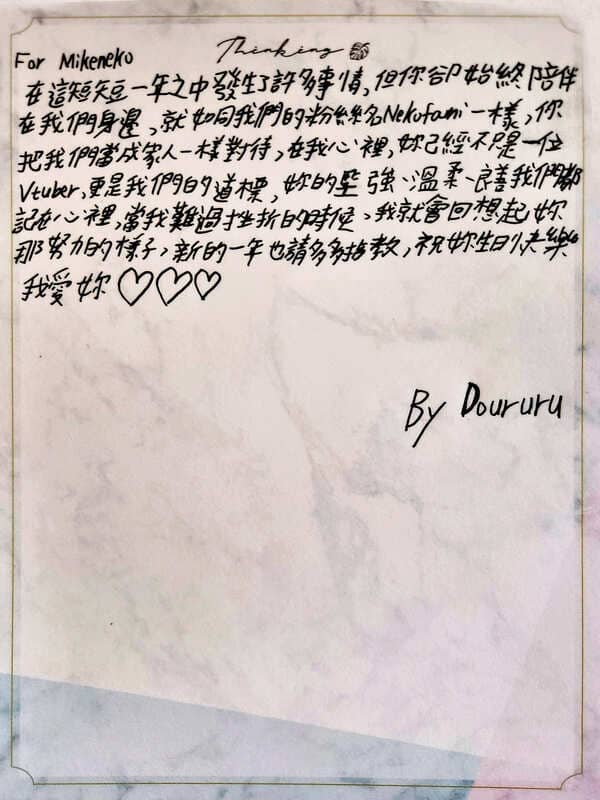 Thinking
For Mikeneko
在這短短一年之中發生了許多事情,但你卻始終陪伴
在我們身邊,就如同我們的粉絲名Nekofami一樣,你
把我們當成家人一樣對待,在我心裡,妳已經不只是一位
Vtuber,更是我們的道標,妳的堅強、溫柔、良善我們都
記在心裡,當我難過挫折的時候、我就會回想起妳
那努力的樣子,新的一年也請多多指教,祝妳生日快樂
我愛妳♡♡♡
By Doururu